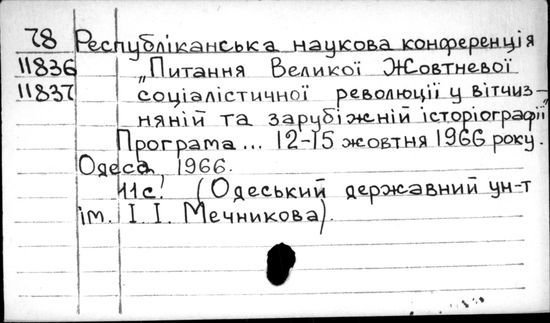 78 Республіканська наукова конференція
11836 „Питання Великої Жовтневої
11837 соціалістичної революції у вітчиз-
няній та зарубіжній історіографії".
Програма... 12-15 жовтня 1966 року.
Одеса, 1966.
11с. (Одеський державний ун-т
ім. І. І. Мечникова).